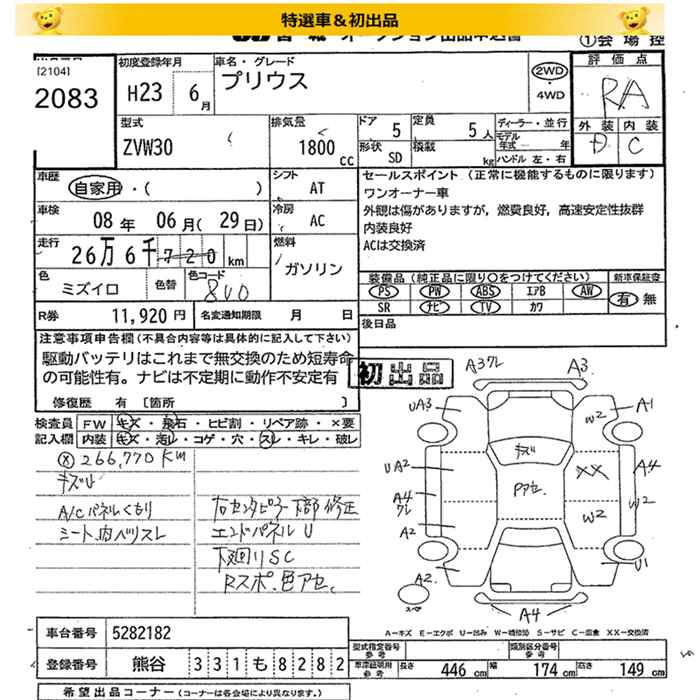 特選車&初出品
宮城オークション出品申込書
①会場控
[2104]
2083
初度登録年月
H23年 6月
車名・グレード
プリウス
2WD
・4WD
評価点
RA
外装 内装
D C
型式
ZVW30
排気量
1800 cc
ドア 5
定員 5人
形状 SD
積載 kg
ディーラー・並行
モデル年式 年
ハンドル 左・右
車歴
自家用・( )
シフト
AT
車検
08年 06月(29日)
冷房
AC
走行
26万6千720km
燃料
ガソリン
色
ミズイロ
色替
色コード
8V0
R券 11,920円
名変通知期限 月 日
セールスポイント(正常に機能するものに限ります)
ワンオーナー車
外観は傷がありますが,燃費良好,高速安定性抜群
内装良好
ACは交換済
装備品(純正品に限り○をつけてください)
新車保証書
PS PW ABS エアB AW
有・無
SR ナビ TV カワ
後日品
注意事項申告欄(不具合内容等は具体的に記入して下さい)
駆動バッテリはこれまで無交換のため短寿命
の可能性有。ナビは不定期に動作不安定有
初出品
修復歴 有 [箇所 ]
検査員記入欄
FW キズ・飛石・ヒビ割・リペア跡・×要
内装 キズ・汚レ・コゲ・穴・スレ・キレ・破レ
ⓧ266,770Km
キズU
A/Cパネルくもり
シート内ベリスレ
右センタピラー下部修正
エンドパネルU
下廻りSC
Rスポ.色アセ.
A3クレ
A3
UA3
A1
W2
キズ
UA2
XX
A4
Pアセ.
A4
クレ
W2
W2
A2
A2.
U1
スペア
A4
A―キズ E―エクボ U―凹み W―補修跡 S―サビ C―腐食 XX―交換済
車台番号 5282182
登録番号 熊谷 331も8282
型式指定番号参考
類別区分番号参考
車庫証明用参考
長さ 446cm
幅 174cm
高さ 149cm
希望出品コーナー(コーナーは各会場により異なります。)